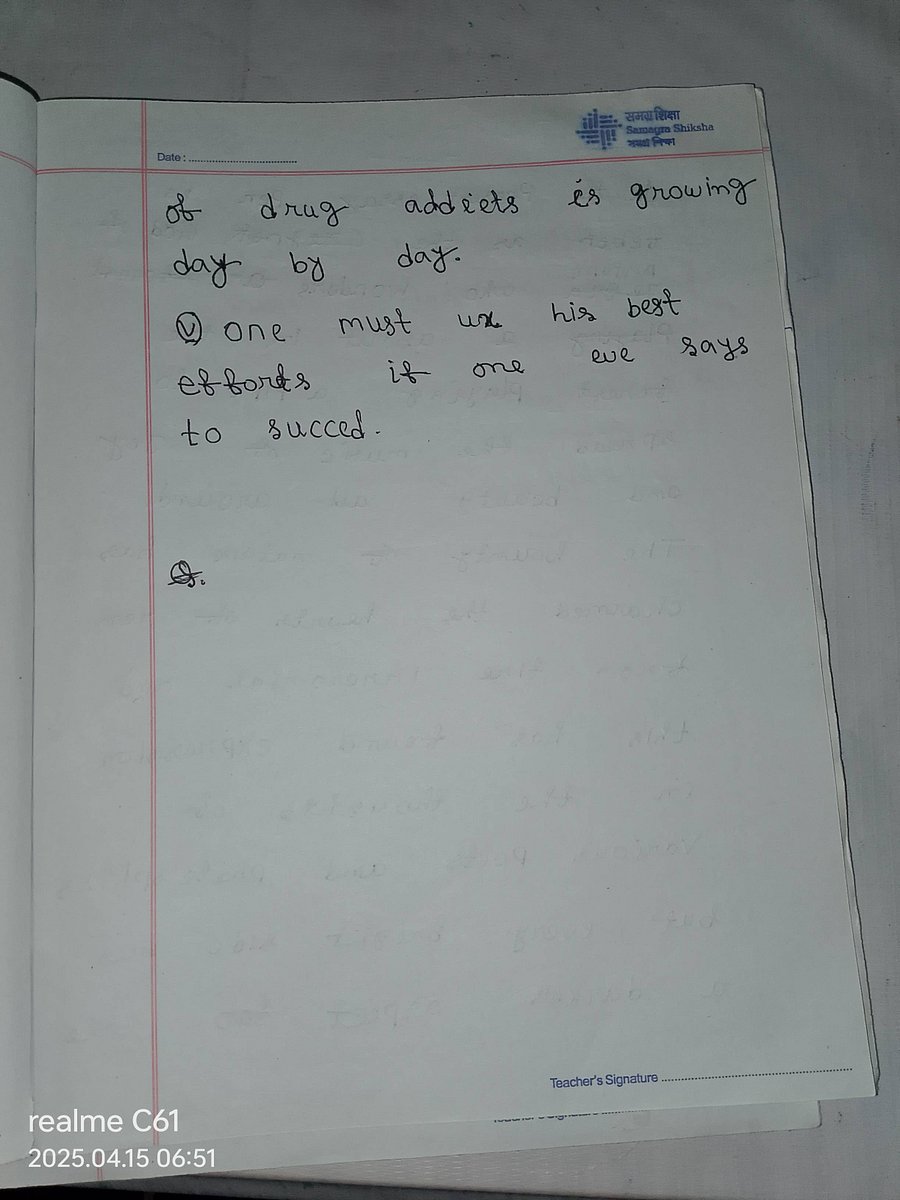 समग्र शिक्षा
Samagra Shiksha
Date :
of drug addicts is growing
day by day.
(v) one must use his best
efforts if one eve says
to succed.
Q.
Teacher's Signature
realme C61
2025.04.15 06:51